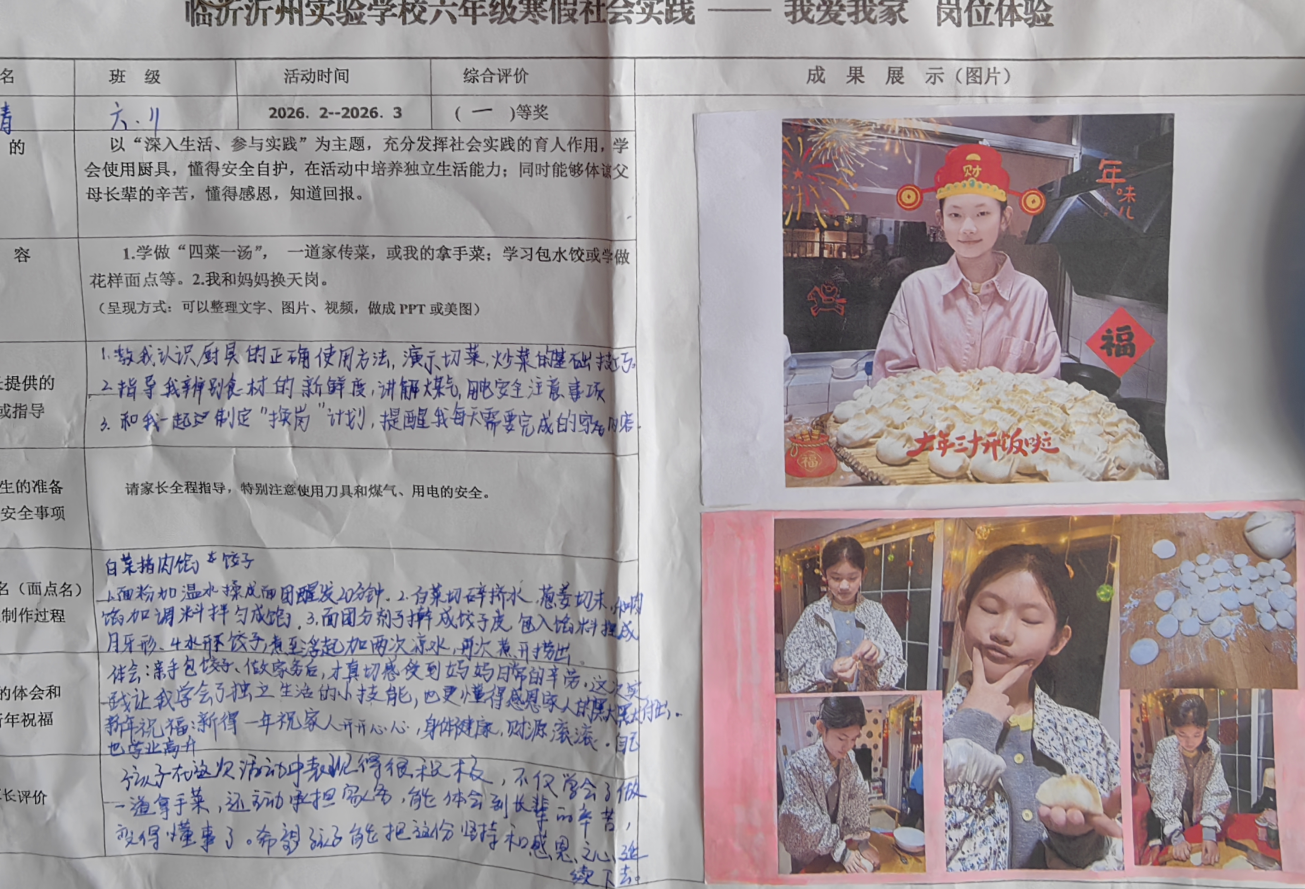 临沂沂州实验学校六年级寒假社会实践 —— 我爱我家 岗位体验
名 班 级 活动时间 综合评价 成 果 展 示（图片）
六.11 2026．2--2026．3 （ 一 ）等奖
的
以“深入生活、参与实践”为主题，充分发挥社会实践的育人作用，学
会使用厨具，懂得安全自护，在活动中培养独立生活能力；同时能够体 父
母长辈的辛苦，懂得感恩，知道回报。
容
1.学做“四菜一汤”， 一道家传菜，或我的拿手菜；学习包水饺或学做
花样面点等。2.我和妈妈换天岗。
（呈现方式：可以整理文字、图片、视频，做成 PPT 或美图）
提供的
或指导
1.教我认识厨具的正确使用方法，演示切菜，炒菜的基础技巧.
2.指导我辨别食材的新鲜度，讲解煤气，用电安全注意事项
3.和我一起 制定“换岗”计划，提醒我每天需要完成的家务内容.
生的准备
安全事项
请家长全程指导，特别注意使用刀具和煤气、用电的安全。
名（面点名）
制作过程
白菜猪肉馅 饺子
1.面粉加温水揉成面团醒发20分钟. 2.白菜切碎挤水 葱姜切末，和肉
馅加调料拌匀成馅. 3.面团分剂子擀成饺子皮 包入馅料捏成
月牙形. 4.水开下饺子煮至浮起加两次凉水，再次煮开捞出.
的体会和
年祝福
体会：亲手包饺子、做家务后，才真切感受到妈妈日常的辛劳，这次实
践让我学会了独立生活的小技能，也更懂得感恩家人的 付出.
新年祝福：新得一年祝家人开开心心，身体健康，财源滚滚．自己
也学业高升
长评价
孩子在这次活动中表现得很积极，不仅学会了做
一道拿手菜，还主动承担家务，能体会到长辈的辛苦，
变得懂事了。希望孩子能把这份坚持和感恩之心延
续下去。
财
年味儿
福
福
大年三十开饭啦